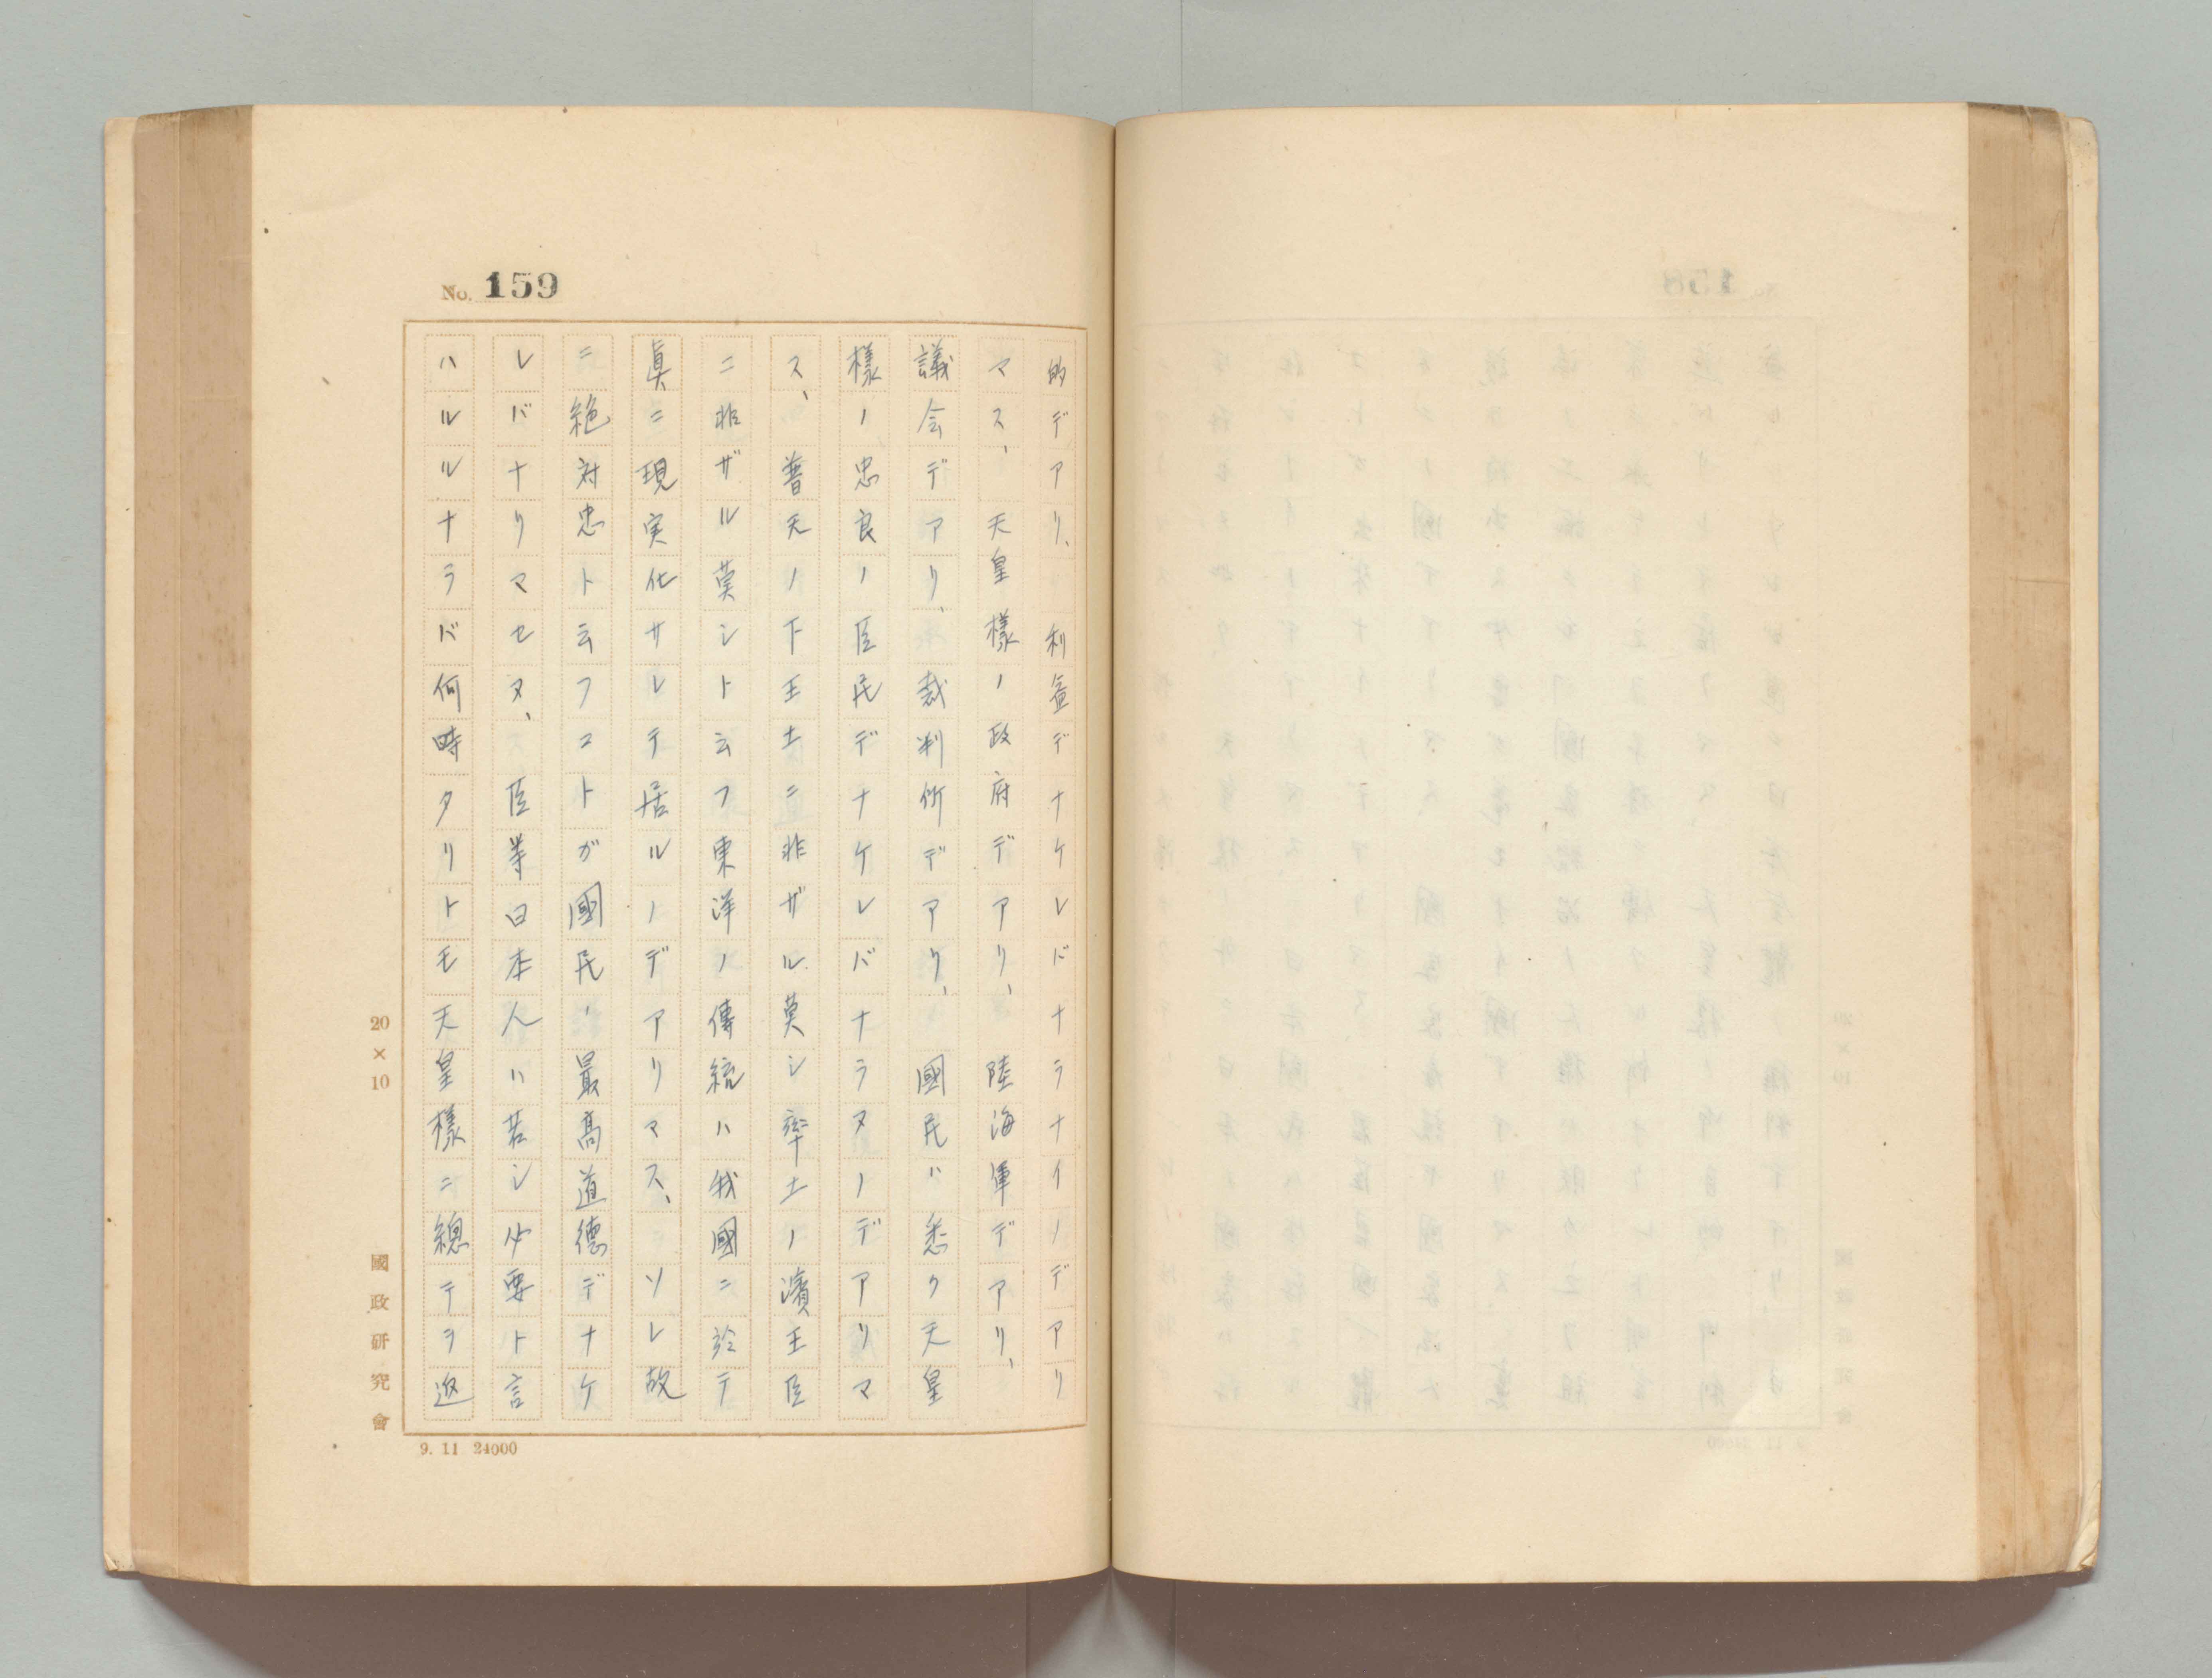 No. 159
的デアリ、利益デナケレバナラナイノデアリ
マス、天皇様ノ政府デアリ、陸海軍デアリ、
議会デアリ、裁判所デアリ、國民ハ悉ク天皇
様ノ忠良ノ臣民デナケレバナラヌノデアリマ
ス、普天ノ下王土ニ非ザル莫シ率土ノ濱王臣
ニ非ザル莫シト云フ東洋ノ傳統ハ我國ニ於テ
眞ニ現実化サレテ居ルノデアリマス、ソレ故
ニ絶対忠ト云フコトガ國民ノ最高道徳デナケ
レバナリマセヌ、臣等日本人ハ若シ必要ト言
ハルルナラバ何時タリトモ天皇様ニ總テヲ返
20×10
國政研究會
9. 11 24000